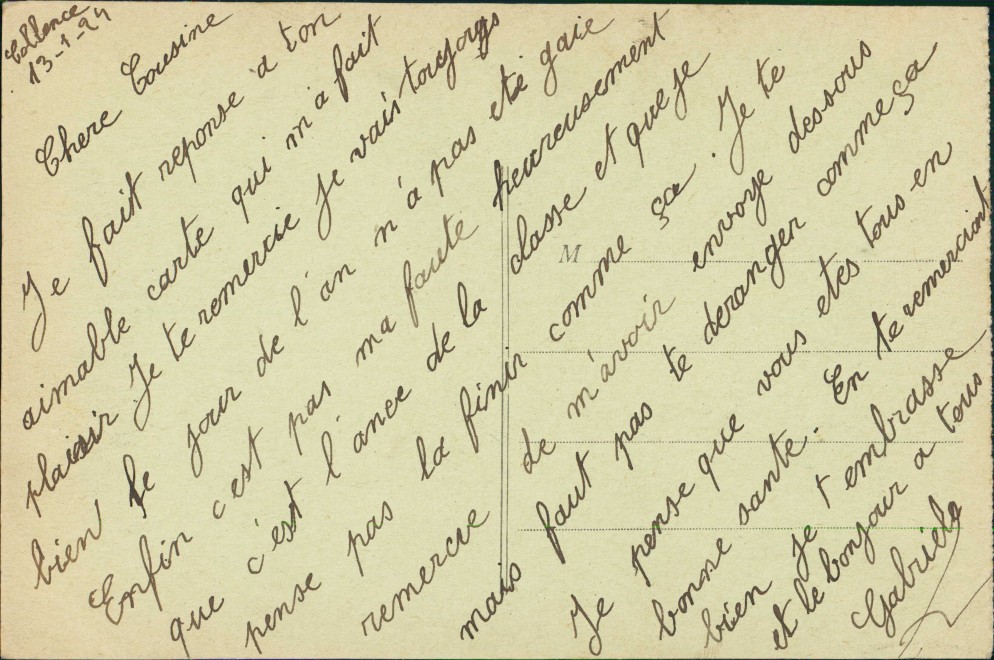 13-1-24
Chere Cousine
Je fait reponse a ton
aimable carte qui m'a fait
plaisir Je te remercie Je vais toujours
bien le jour de l'an n'a pas eté gaie
Enfin c'est pas ma faute heureusement
que c'est l'ance de la classe et que je
pense pas la finir comme ça. Je te
remercie de m'avoir envoye dessous
mais faut pas te deranger comme ça
Je pense que vous etes tous en
bonne sante. En te remerciant
bien je t embrasse
et le bonjour a tous
Gabriela
M